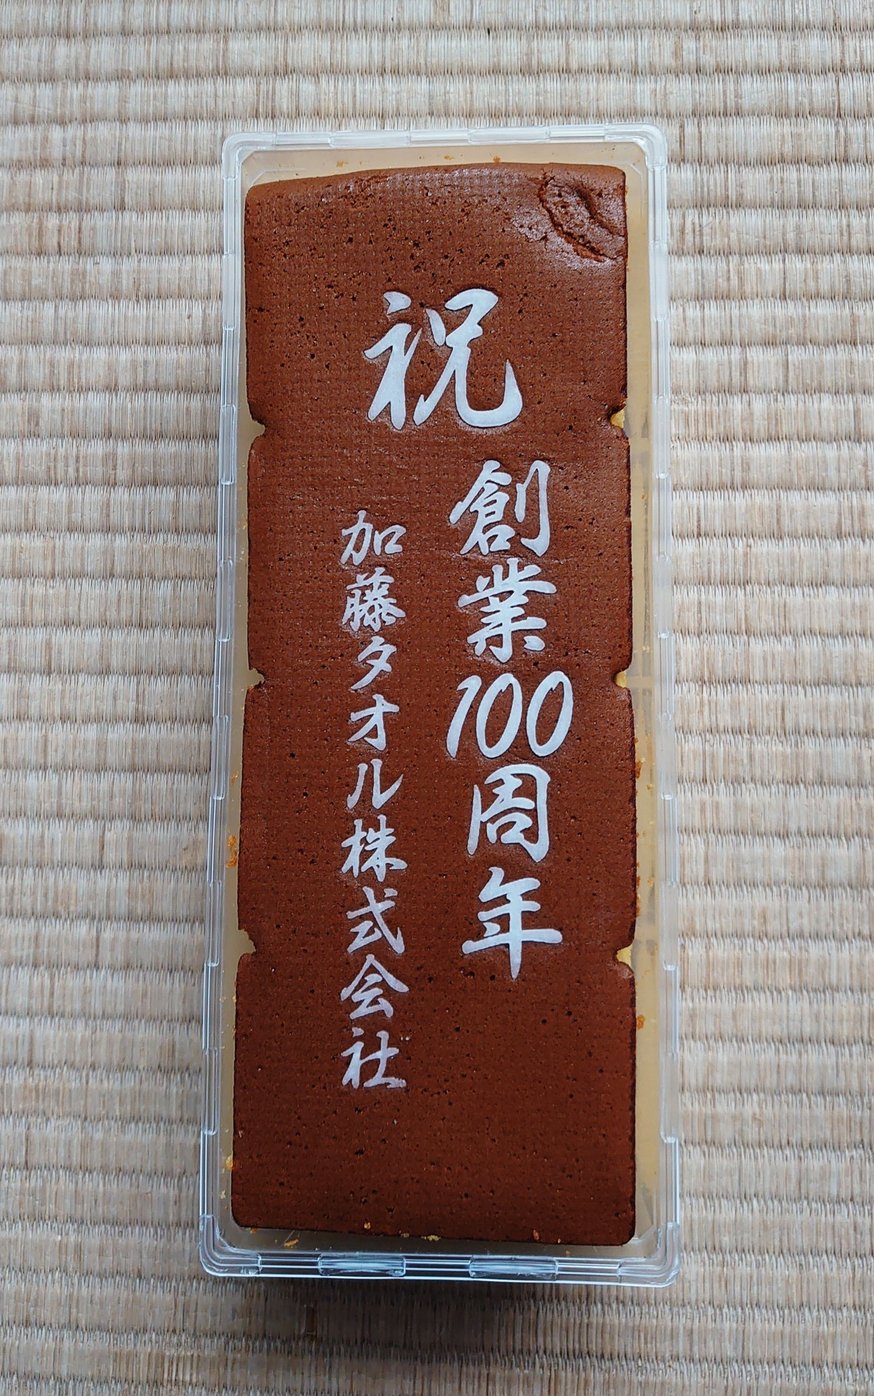 祝
創業100周年
加藤タオル株式会社